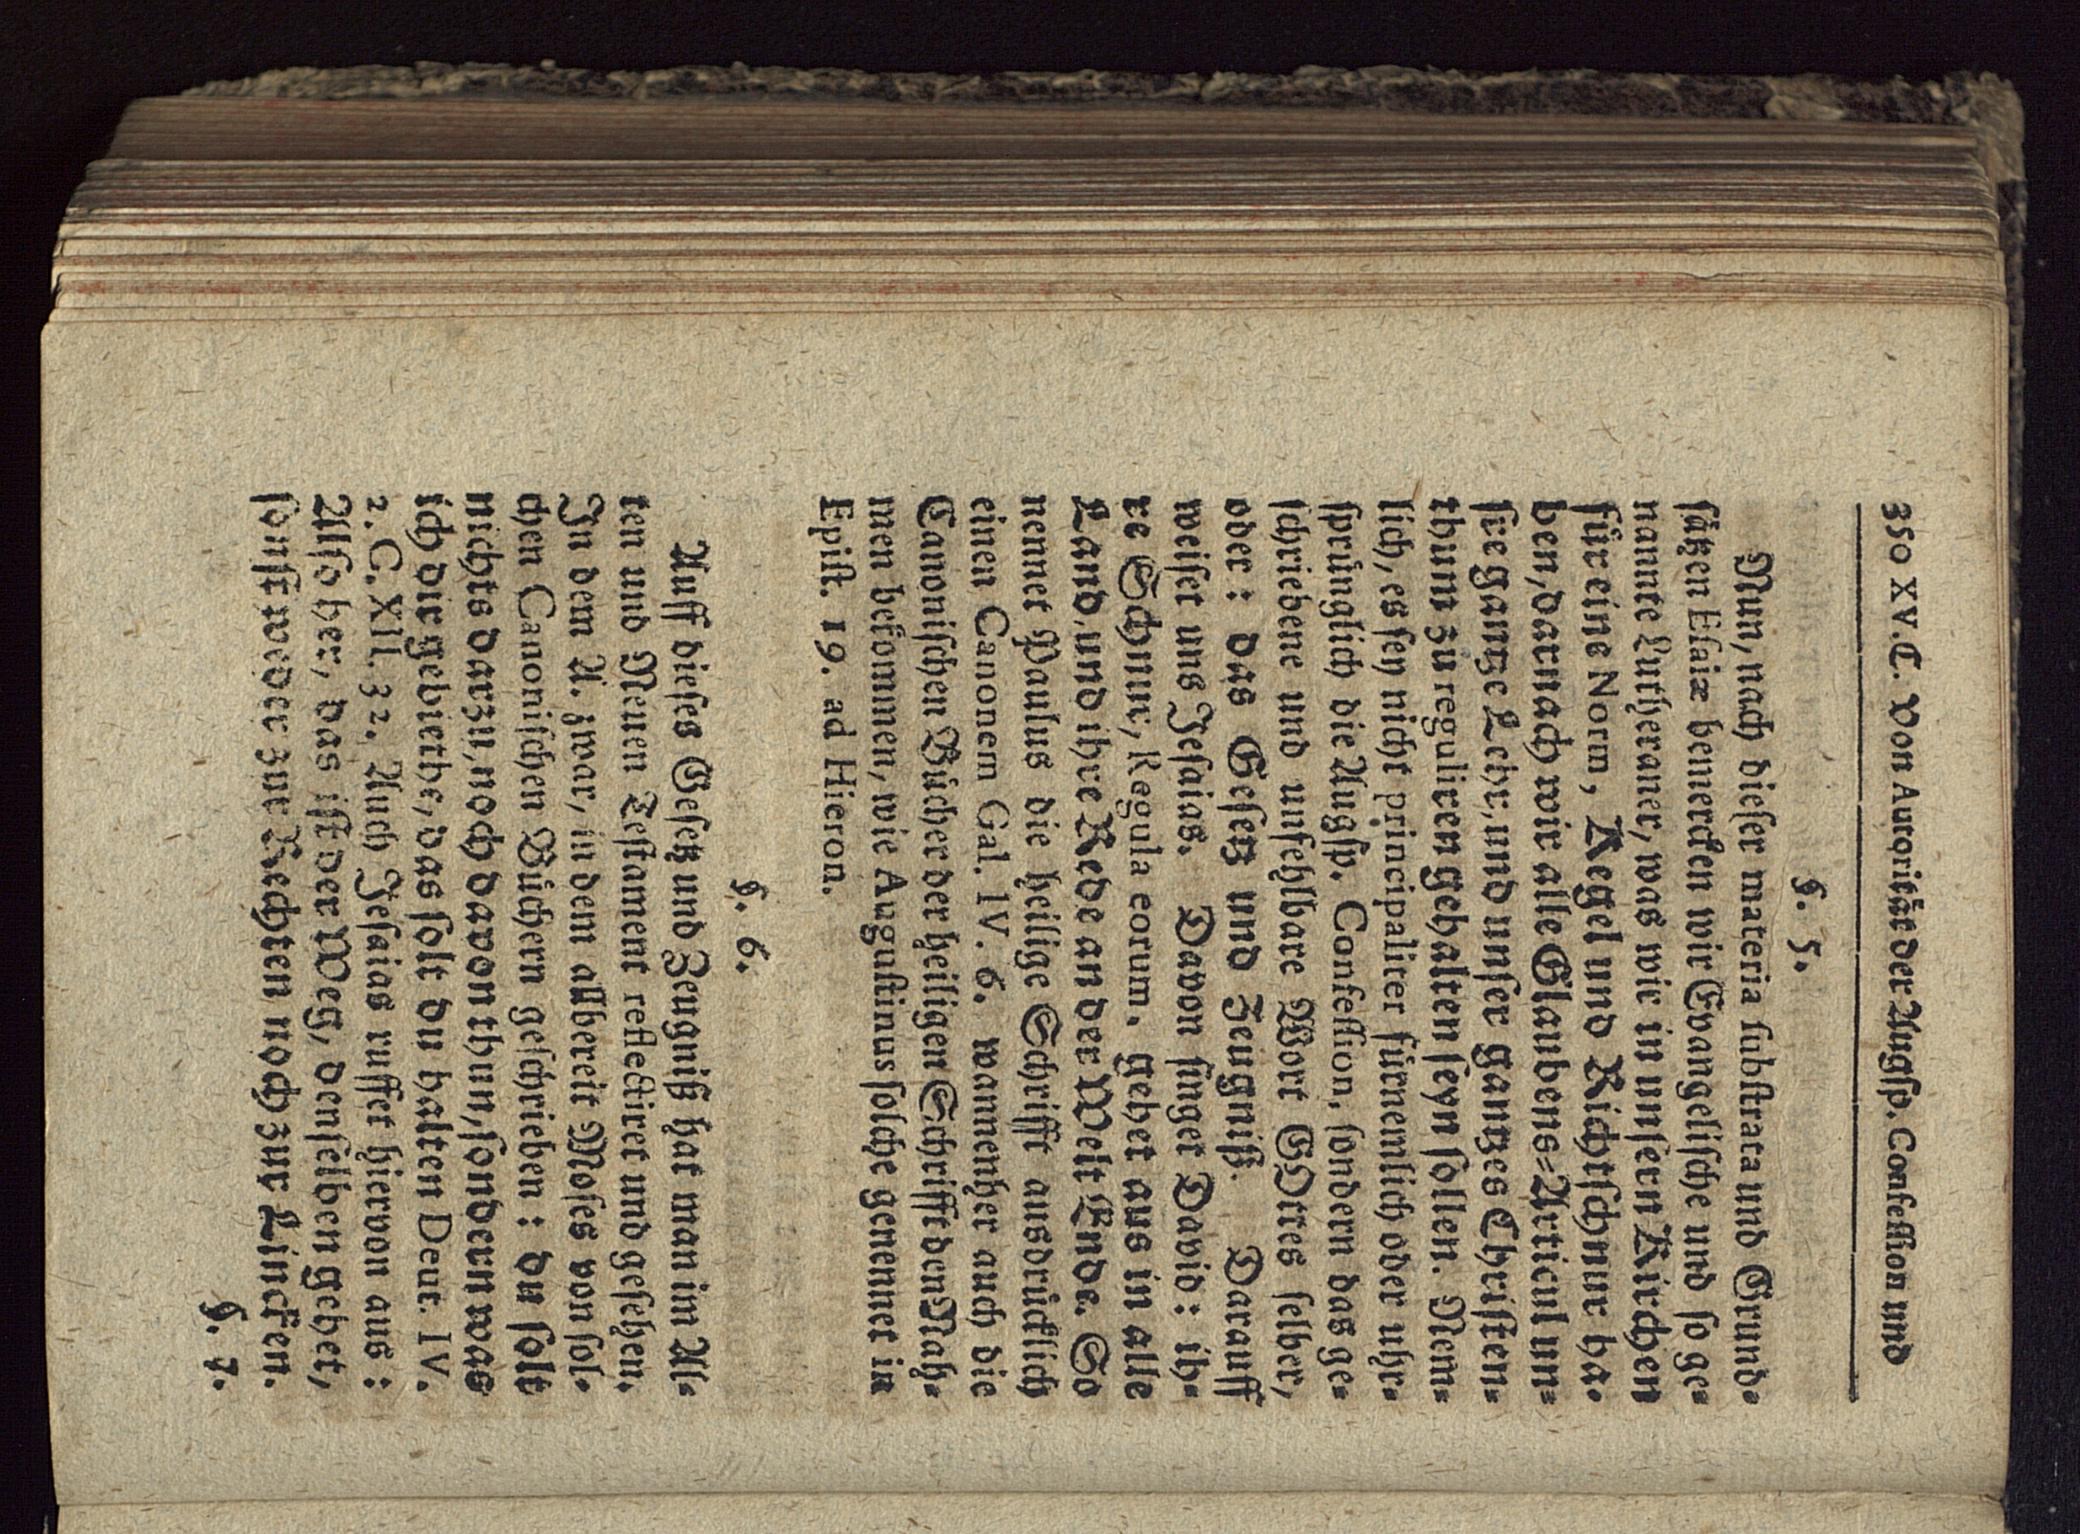 350 XV.C. Von Autorität der Augſp. Confeſſion und
§. 5.
Nun, nach dieſer materia ſubſtrata und Grund-
ſätzen Eſaiæ bemercken wir Evangeliſche und ſo ge-
nannte Lutheraner, was wir in unſern Kirchen
für eine Norm, Regel und Richtſchnur ha-
ben, darnach wir alle Glaubens-Articul un-
ſre gantze Lehr, und unſer gantzes Chriſten-
thum zu reguliren gehalten ſeyn ſollen. Nem-
lich, es ſey nicht principaliter fürnemlich oder uhr-
ſprünglich die Augſp. Confeſſion, ſondern das ge-
ſchriebene und unfehlbare Wort GOttes ſelber,
oder: das Geſetz und Zeugniß. Darauff
weiſet uns Jeſaias. Davon ſinget David: ih-
re Schnur, Regula eorum, gehet aus in alle
Land, und ihre Rede an der Welt Ende. So
nennet Paulus die heilige Schrifft ausdrücklich
einen Canonem Gal. IV. 6. wannenher auch die
Canoniſchen Bücher der heiligen Schrifft den Nah-
men bekommen, wie Auguſtinus ſolche genennet in
Epiſt. 19. ad Hieron.
§. 6.
Auff dieſes Geſetz und Zeugniß hat man im Al-
ten und Neuen Teſtament reflectiret und geſehen.
In dem A. zwar, in dem allbereit Moſes von ſol-
chen Canoniſchen Büchern geſchrieben: du ſolt
nichts darzu, noch davon thun, ſondern was
ich dir gebiethe, das ſolt du halten Deut. IV.
2. C. XII. 32. Auch Jeſaias ruffet hiervon aus:
Alſo her, das iſt der Weg, denſelben gehet,
ſonſt weder zur Rechten noch zur Lincken.
§. 7.